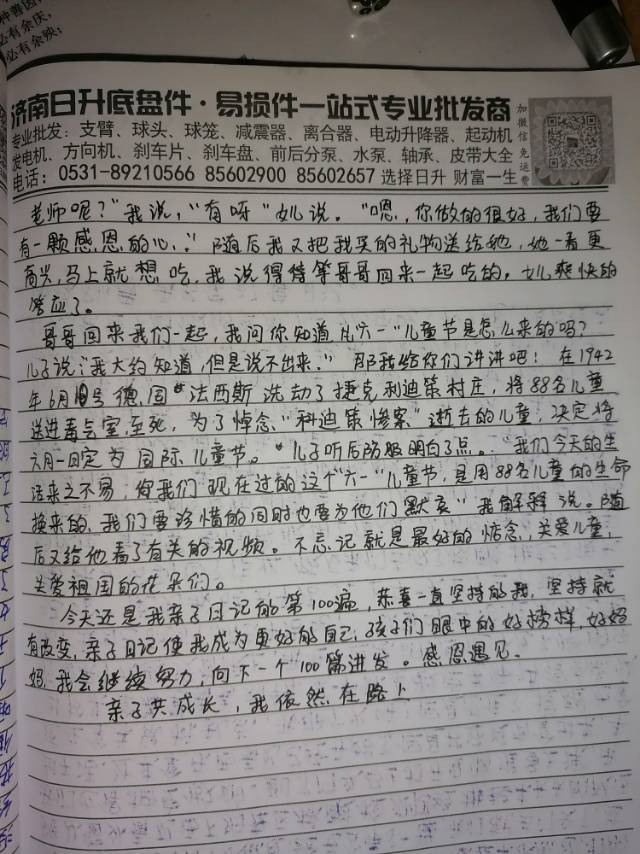 种善因
必有余庆,
必有余殃:
济南日升底盘件·易损件一站式专业批发商
专业批发：支臂、球头、球笼、减震器、离合器、电动升降器、起动机
发电机、方向机、刹车片、刹车盘、前后分泵、水泵、轴承、皮带大全
电话：0531-89210566 85602900 85602657 选择日升 财富一生
加微信 免运费
老师呢？"我说，"有呀"女儿说。"嗯，你做的很好，我们要
有一颗感恩的心。"随后我又把我买的礼物送给她，她一看更
高兴，马上就想吃，我说得待等哥哥回来一起吃的。女儿爽快的
答应了。
哥哥回来我们一起，我问你知道"六一"儿童节是怎么来的吗？
儿子说："我大约知道，但是说不出来。"那我给你们讲讲吧！在1942
年6月10号德国法西斯洗劫了捷克利迪策村庄，将88名儿童
送进毒气室至死，为了悼念"利迪策惨案"逝去的儿童，决定将
六月一日定为国际儿童节。"儿子听后明白了点。"我们今天的生
活来之不易，你我们现在过的这个"六一"儿童节，是用88名儿童的生命
换来的，我们要珍惜的同时也要为他们默哀"我解释说。随
后又给他看了有关的视频。不忘记就是最好的惦念，关爱儿童，
关爱祖国的花朵们。
今天还是我亲子日记的第100篇，恭喜一直坚持的我，坚持就
有改变，亲子日记使我成为更好的自己，孩子们眼中的好榜样，好妈
妈，我会继续努力，向下一个100篇进发。感恩遇见。
亲子共成长，我依然在路上